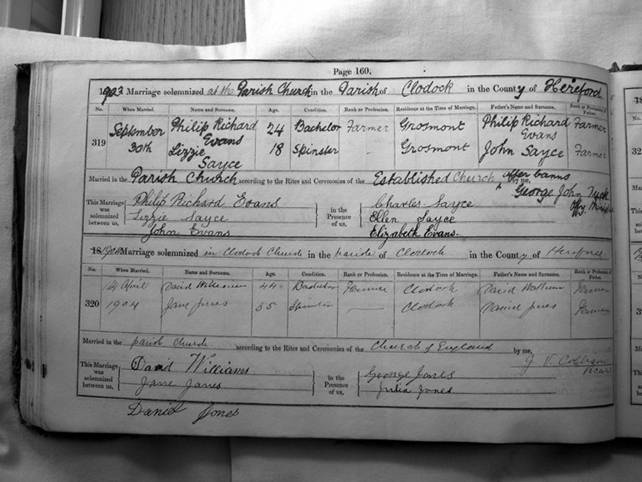 Page 160.
1903 Marriage solemnized at the Parish Church in the Parish of Clodock in the County of Hereford
No. When Married. Name and Surname. Age. Condition. Rank or Profession. Residence at the Time of Marriage. Father's Name and Surname. Rank or Profession of Father.
319 September 30th Philip Richard Evans 24 Bachelor Farmer Grosmont Philip Richard Evans Farmer
Lizzie Sayce 18 Spinster Grosmont John Sayce Farmer
Married in the Parish Church according to the Rites and Ceremonies of the Established Church after banns by me,
George John
This Marriage was solemnized between us, Philip Richard Evans
Lizzie Sayce
John Evans
in the Presence of us, Charles Sayce
Ellen Sayce
Elizabeth Evans.
18 1904 Marriage solemnized in Clodock Church in the parish of Clodock in the County of Hereford
No. When Married. Name and Surname. Age. Condition. Rank or Profession. Residence at the Time of Marriage. Father's Name and Surname. Rank or Profession of Father.
320 April David Williams 44 Bachelor Farmer Clodock David Farmer
1904 Jane Jones 55 Spinster — Clodock Jones Farmer
Married in the parish Church according to the Rites and Ceremonies of the Church of England by me,
This Marriage was solemnized between us, David Williams
Jane Jones
Daniel Jones
in the Presence of us, George Jones
Julia Jones